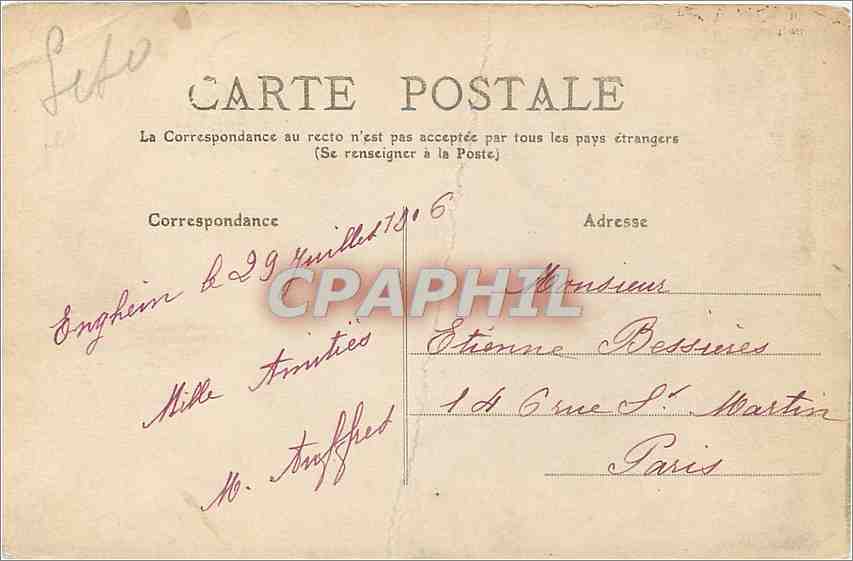 CARTE POSTALE
La Correspondance au recto n'est pas acceptée par tous les pays étrangers
(Se renseigner à la Poste)
Correspondance
Enghein le 29 Juillet 1906
Mille Amitiés
M. Auffret
Adresse
Monsieur
Etienne Bessières
146 rue St Martin
Paris
CPAPHIL